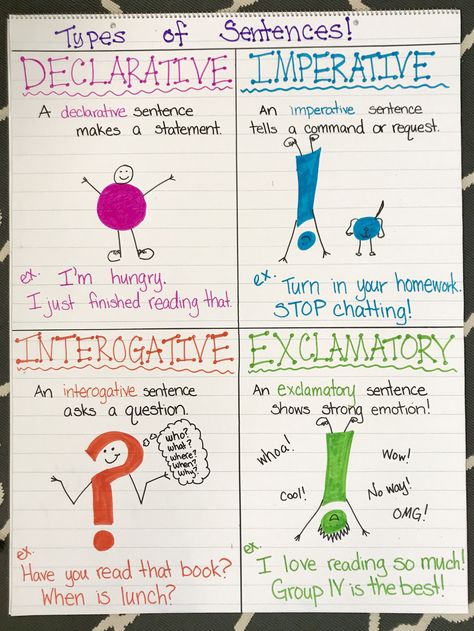 Types of Sentences!
DECLARATIVE
A declarative sentence
makes a statement.
ex. I'm hungry.
I just finished reading that.
IMPERATIVE
An imperative sentence
tells a command or request.
ex. Turn in your homework.
STOP chatting!
INTEROGATIVE
An interogative sentence
asks a question.
who?
what?
where?
when?
why?
ex. Have you read that book?
When is lunch?
EXCLAMATORY
An exclamatory sentence
shows strong emotion!
whoa!
Wow!
Cool!
No way!
OMG!
ex. I love reading so much!
Group IV is the best!